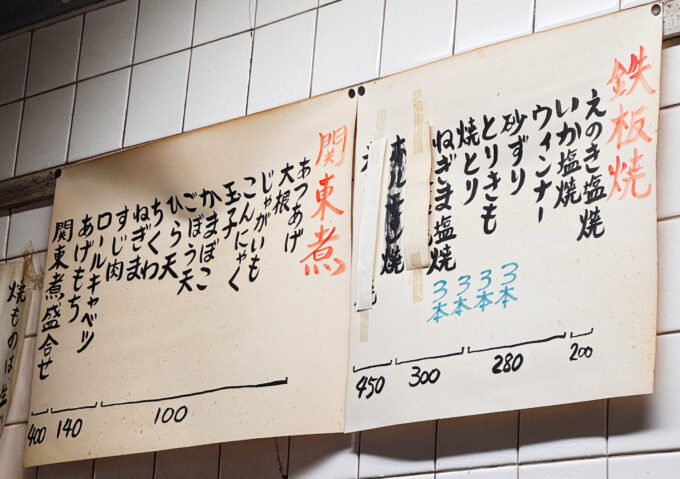 鉄板焼
えのき塩焼
いか塩焼
ウィンナー
砂ずり
とりきも
焼とり
ねぎま塩焼
焼
3本
3本
3本
3本
200
280
300
450
関東煮
あつあげ
大根
じゃがいも
こんにゃく
玉子
かまぼこ
ごぼう天
ひら天
ちくわ
ねぎま
すじ肉
ロールキャベツ
あげもち
関東煮盛合せ
100
140
400
焼ものは